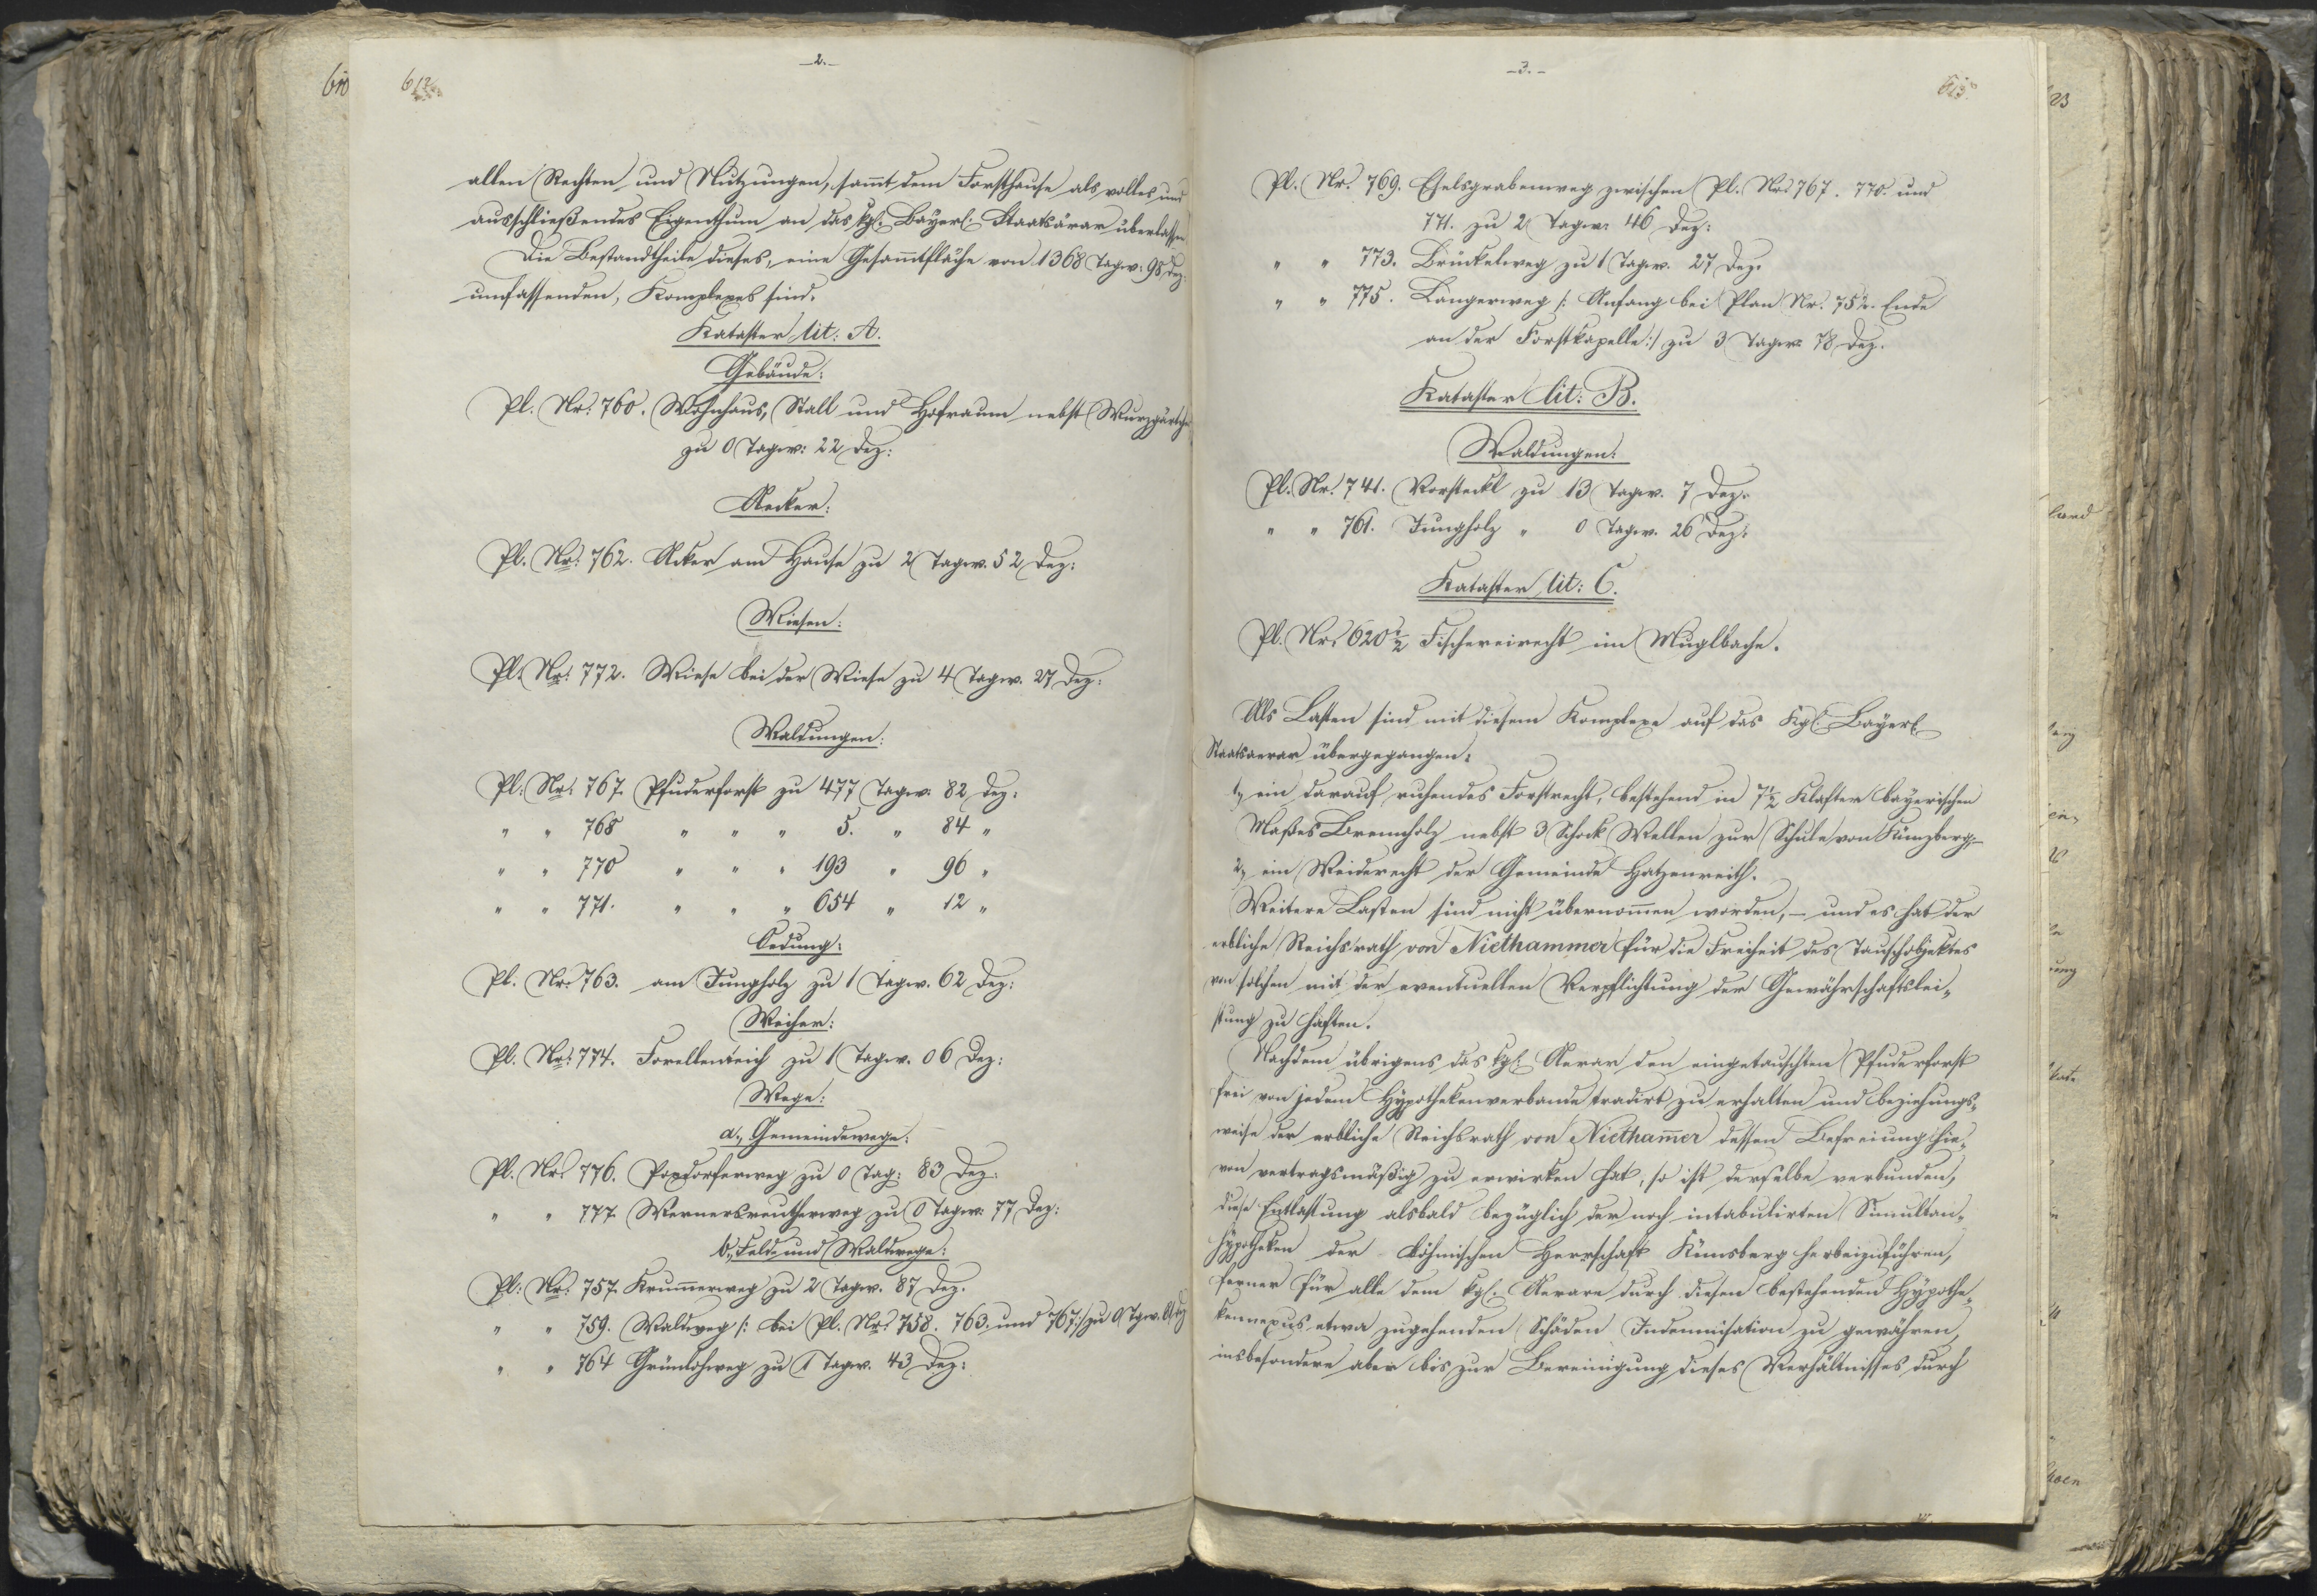 610
612
-2.-
allen Rechten und Nutzungen, sammt dem Forsthause als volles und
ausschließendes Eigenthum an das kgl: Bayerl: Staatsärar überlassen.
Die Bestandtheile dieses, eine Gesammtfläche von 1368 Tagw: 98 Dez:
umfassenden, Komplexes sind.
Kataster lit: A.
Gebäude:
Pl. Nr: 760. Wohnhaus, Stall und Hofraum nebst Wurzgärtchen
zu 0 Tagw: 22 Dez:
Aecker:
Pl. Nr: 762. Acker am Hause zu 2 Tagw. 52 Dez:
Wiesen:
Pl: Nr: 772. Wiese bei der Wiese zu 4 Tagw. 27 Dez:
Waldungen:
Pl: Nr: 767. Pfuderforst zu 477 Tagw: 82 Dez:
" " 768 " " " 5. " 84 "
" " 770 " " " 193 " 96 "
" " 771. " " " 654 " 12 "
Oedung:
Pl. Nr: 763. am Jungholz zu 1 Tagw. 62 Dez:
Weiher:
Pl. Nr: 774. Forellenteich zu 1 Tagw. 06 Dez:
Wege:
a., Gemeindewege:
Pl. Nr: 776. Poxdorferweg zu 0 Tag: 83 Dez:
" " 777. Wernersreutherweg zu 0 Tagw: 77 Dez:
b., Feld- und Waldwege:
Pl: Nr: 757. Krummerweg zu 2 Tagw. 87 Dez.
" " 759. Waldweg /: bei Pl. Nr: 758. 763. und 767:/ zu 0 Tgw.
" " 764 Grünlohweg zu 1 Tagw. 43 Dez:
-3.-
613
Pl. Nr: 769. Eselsgrabenweg zwischen Pl. Nro 767. 770. und
771. zu 2 Tagw: 46 Dez:
" " 773. Brückelweg zu 1 Tagw. 27 Dez.
" " 775. Langerweg /: Anfang bei Plan Nr. 752. Ende
an der Forstkapelle:/ zu 3 Tagw. 78 Dez.
Kataster lit: B.
Waldungen:
Pl. Nr: 741. Vorsteckl zu 13 Tagw. 7 Dez.
" " 761. Jungholz " 0 Tagw. 26 Dez:
Kataster lit: C.
Pl. Nr: 620½ Fischereirecht im Muglbache.
Als Lasten sind mit diesem Komplexe auf das Kgl: Bayerl.
Staatsaerar übergegangen:
1, ein darauf ruhendes Forstrecht, bestehend in 7½ Klafter bayerischen
Maßes Brennholz nebst 3 Schock Wellen zur Schule von Künzberg,-
2, ein Weiderecht der Gemeinde Hatzenreith.
Weitere Lasten sind nicht übernommen worden, - und es hat der
erbliche Reichsrath von Niethammer für die Freiheit des Tauschobjektes
von solchen mit der eventuellen Verpflichtung der Gewährschaftslei-
stung zu haften.
Nachdem übrigens das kgl. Aerar den eingetauschten Pfuderforst
frei von jedem Hypothekenverbande tradirt zu erhalten und beziehungs-
weise der erbliche Reichsrath von Niethammer dessen Befreiung hie-
von vertragsmäßig zu erwirken hat, so ist derselbe verbunden,
diese Entlastung alsbald bezüglich der noch intabulirten Simultan-
hypotheken der böhmischen Herrschaft Künsberg herbeizuführen,
ferner für alle dem kgl. Aerare durch diesen bestehenden Hypothe-
kennexus etwa zugehenden Schäden Indemnisation zu gewähren,
insbesondere aber bis zur Bereinigung dieses Verhältnisses durch